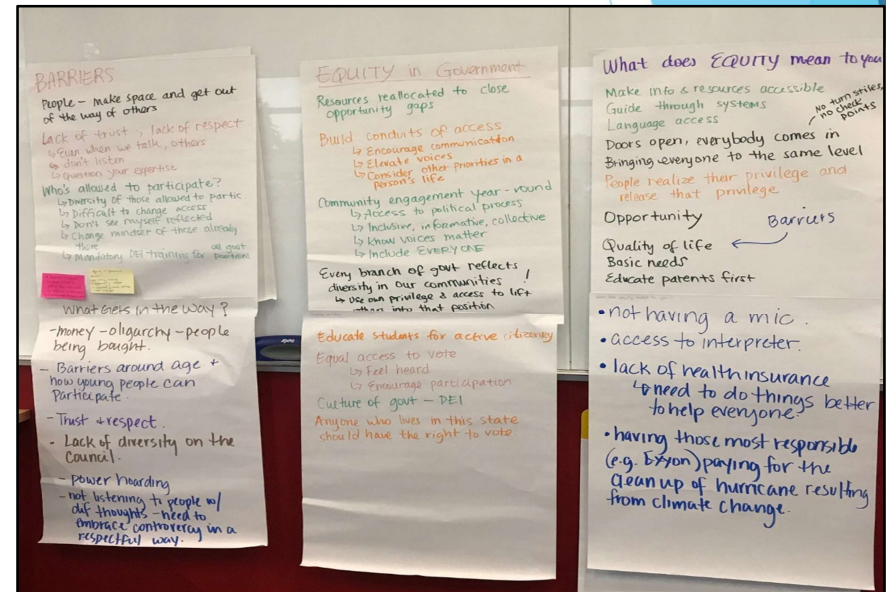 BARRIERS
People - make space and get out
of the way of others
Lack of trust, lack of respect
↳ Even when we talk, others
↳ don't listen
↳ Question your expertise
Who's allowed to participate?
↳ Diversity of those allowed to partic
↳ Difficult to change access
↳ Don't see myself reflected
↳ Change mindset of those already
there
↳ Mandatory DEI training for all govt positions
What Gets in the way?
- money - oligarchy - people
being bought.
- Barriers around age +
how young people can
participate.
- Trust + respect.
- Lack of diversity on the
Council.
- power hoarding
- not listening to people w/
dif thoughts - need to
embrace controvercy in a
respectful way.
EQUITY in Government
Resources reallocated to close
opportunity gaps
Build conduits of access
↳ Encourage communication
↳ Elevate voices
↳ Consider other priorities in a
person's life
Community engagement year-round
↳ Access to political process
↳ Inclusive, informative, collective
↳ Know voices matter
↳ Include EVERYONE
Every branch of govt reflects
diversity in our communities!
↳ Use own privilege & access to lift
others into that position
Educate students for active citizenry
Equal access to vote
↳ Feel heard
↳ Encourage participation
Culture of govt - DEI
Anyone who lives in this state
should have the right to vote
What does EQUITY mean to you
Make info & resources accessible
Guide through systems
Language access
No turn stiles,
no check
points
Doors open, everybody comes in
Bringing everyone to the same level
People realize their privilege and
release that privilege
Opportunity
Barriers
Quality of life
Basic needs
Educate parents first
• not having a mic.
• access to interpreter.
• lack of health insurance
↳ need to do things better
to help everyone.
• having those most responsible
(e.g. Exxon) paying for the
clean up of hurricane resulting
from climate change.